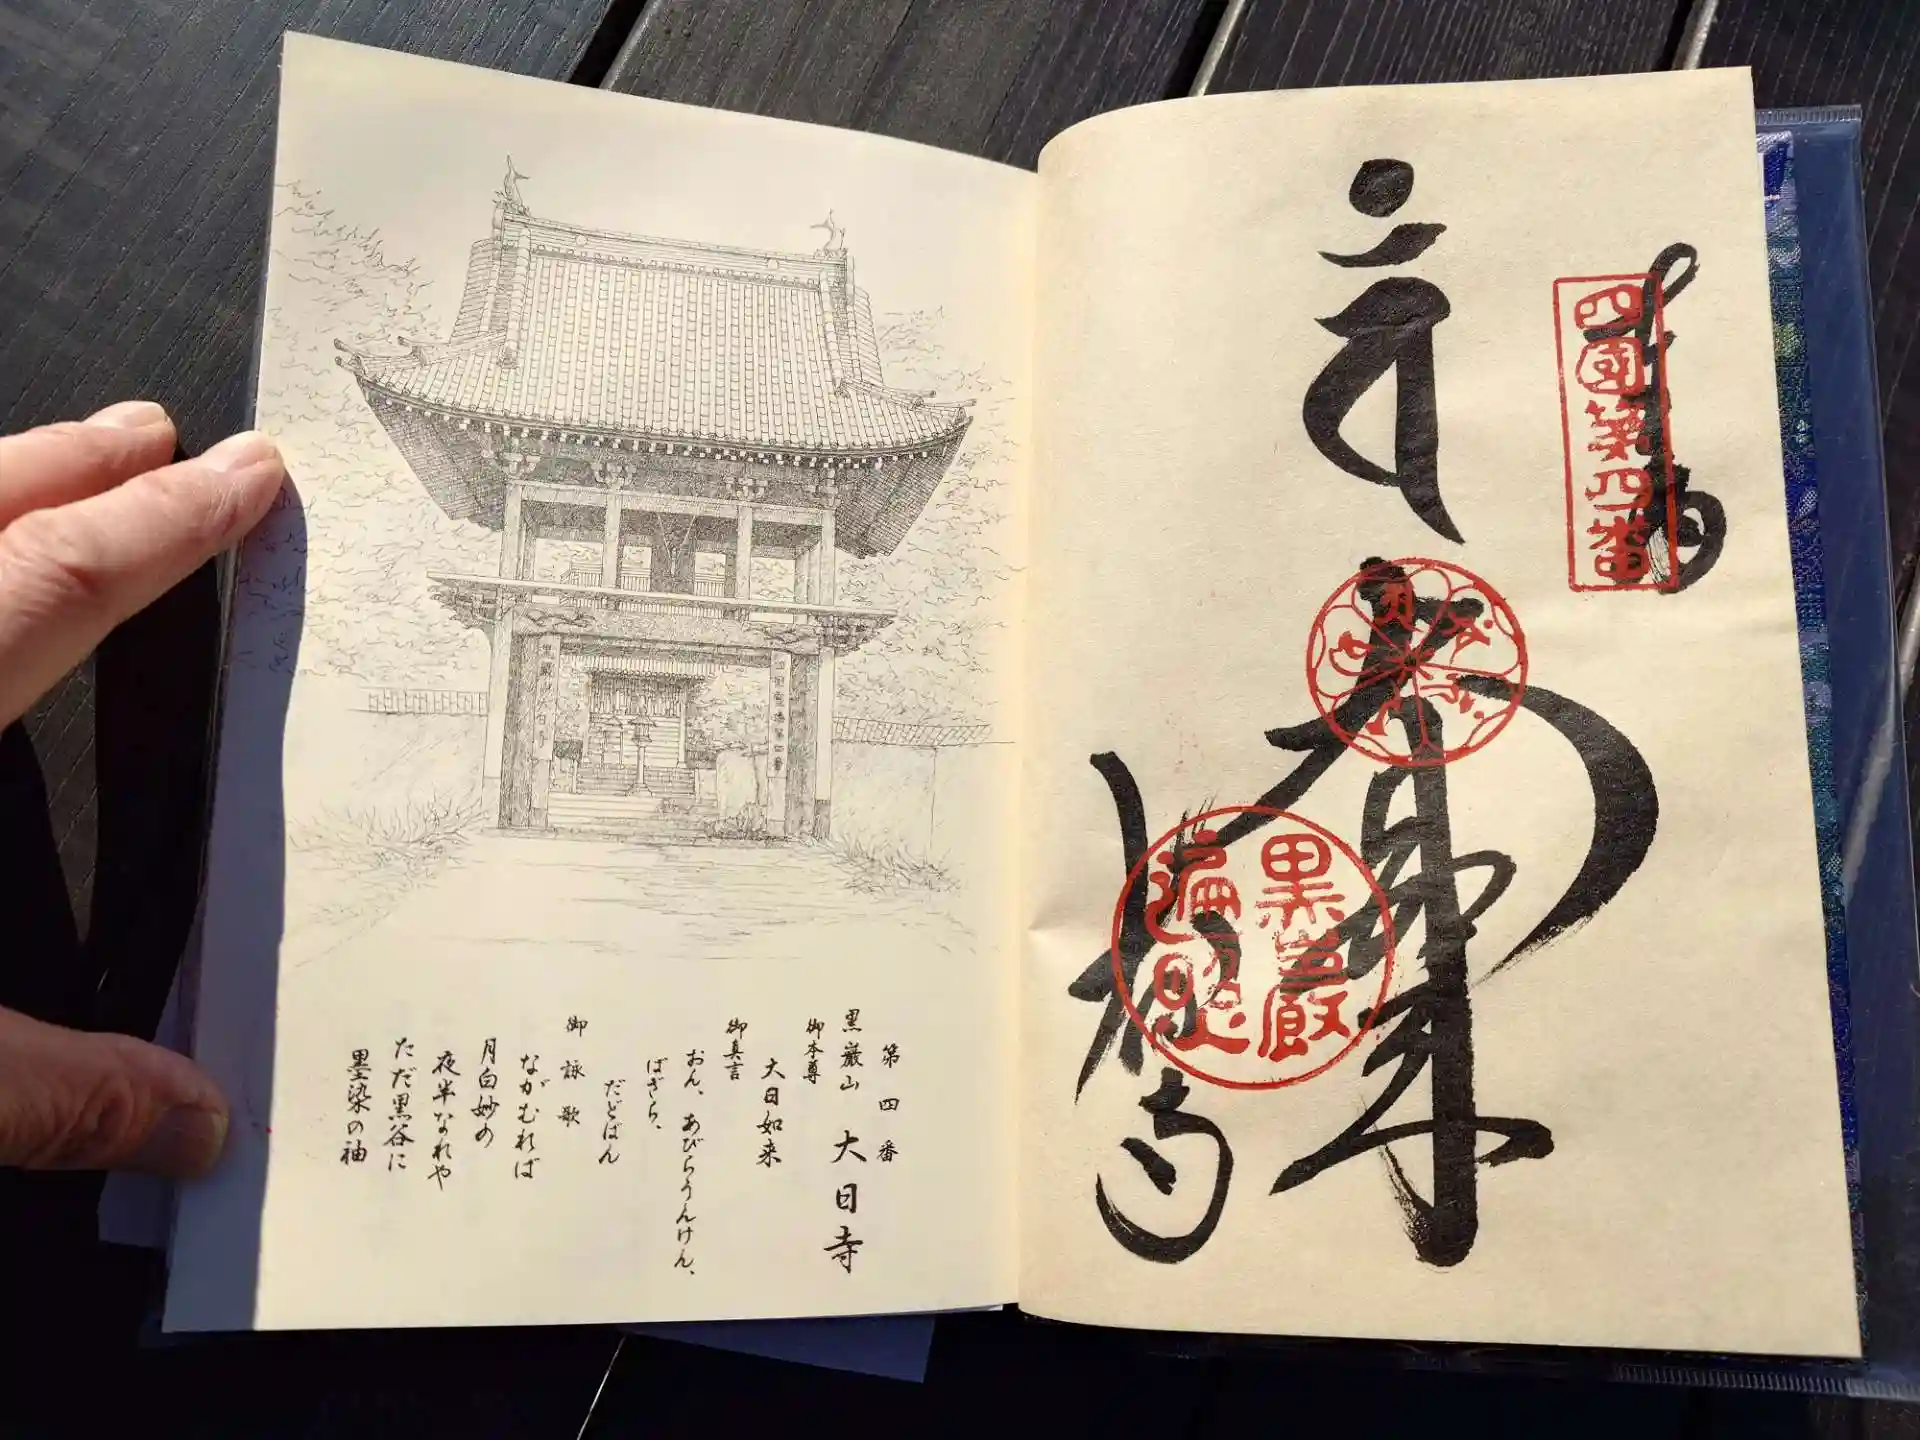 第四番
黒巖山 大日寺
御本尊
大日如来
御真言
おん、あびらうんけん、
ばざら、
だどばん
御詠歌
ながむれば
月白妙の
夜半なれや
ただ黒谷に
墨染の袖
奉納
四国第四番
大日如来
大日寺
黒巖
遍照